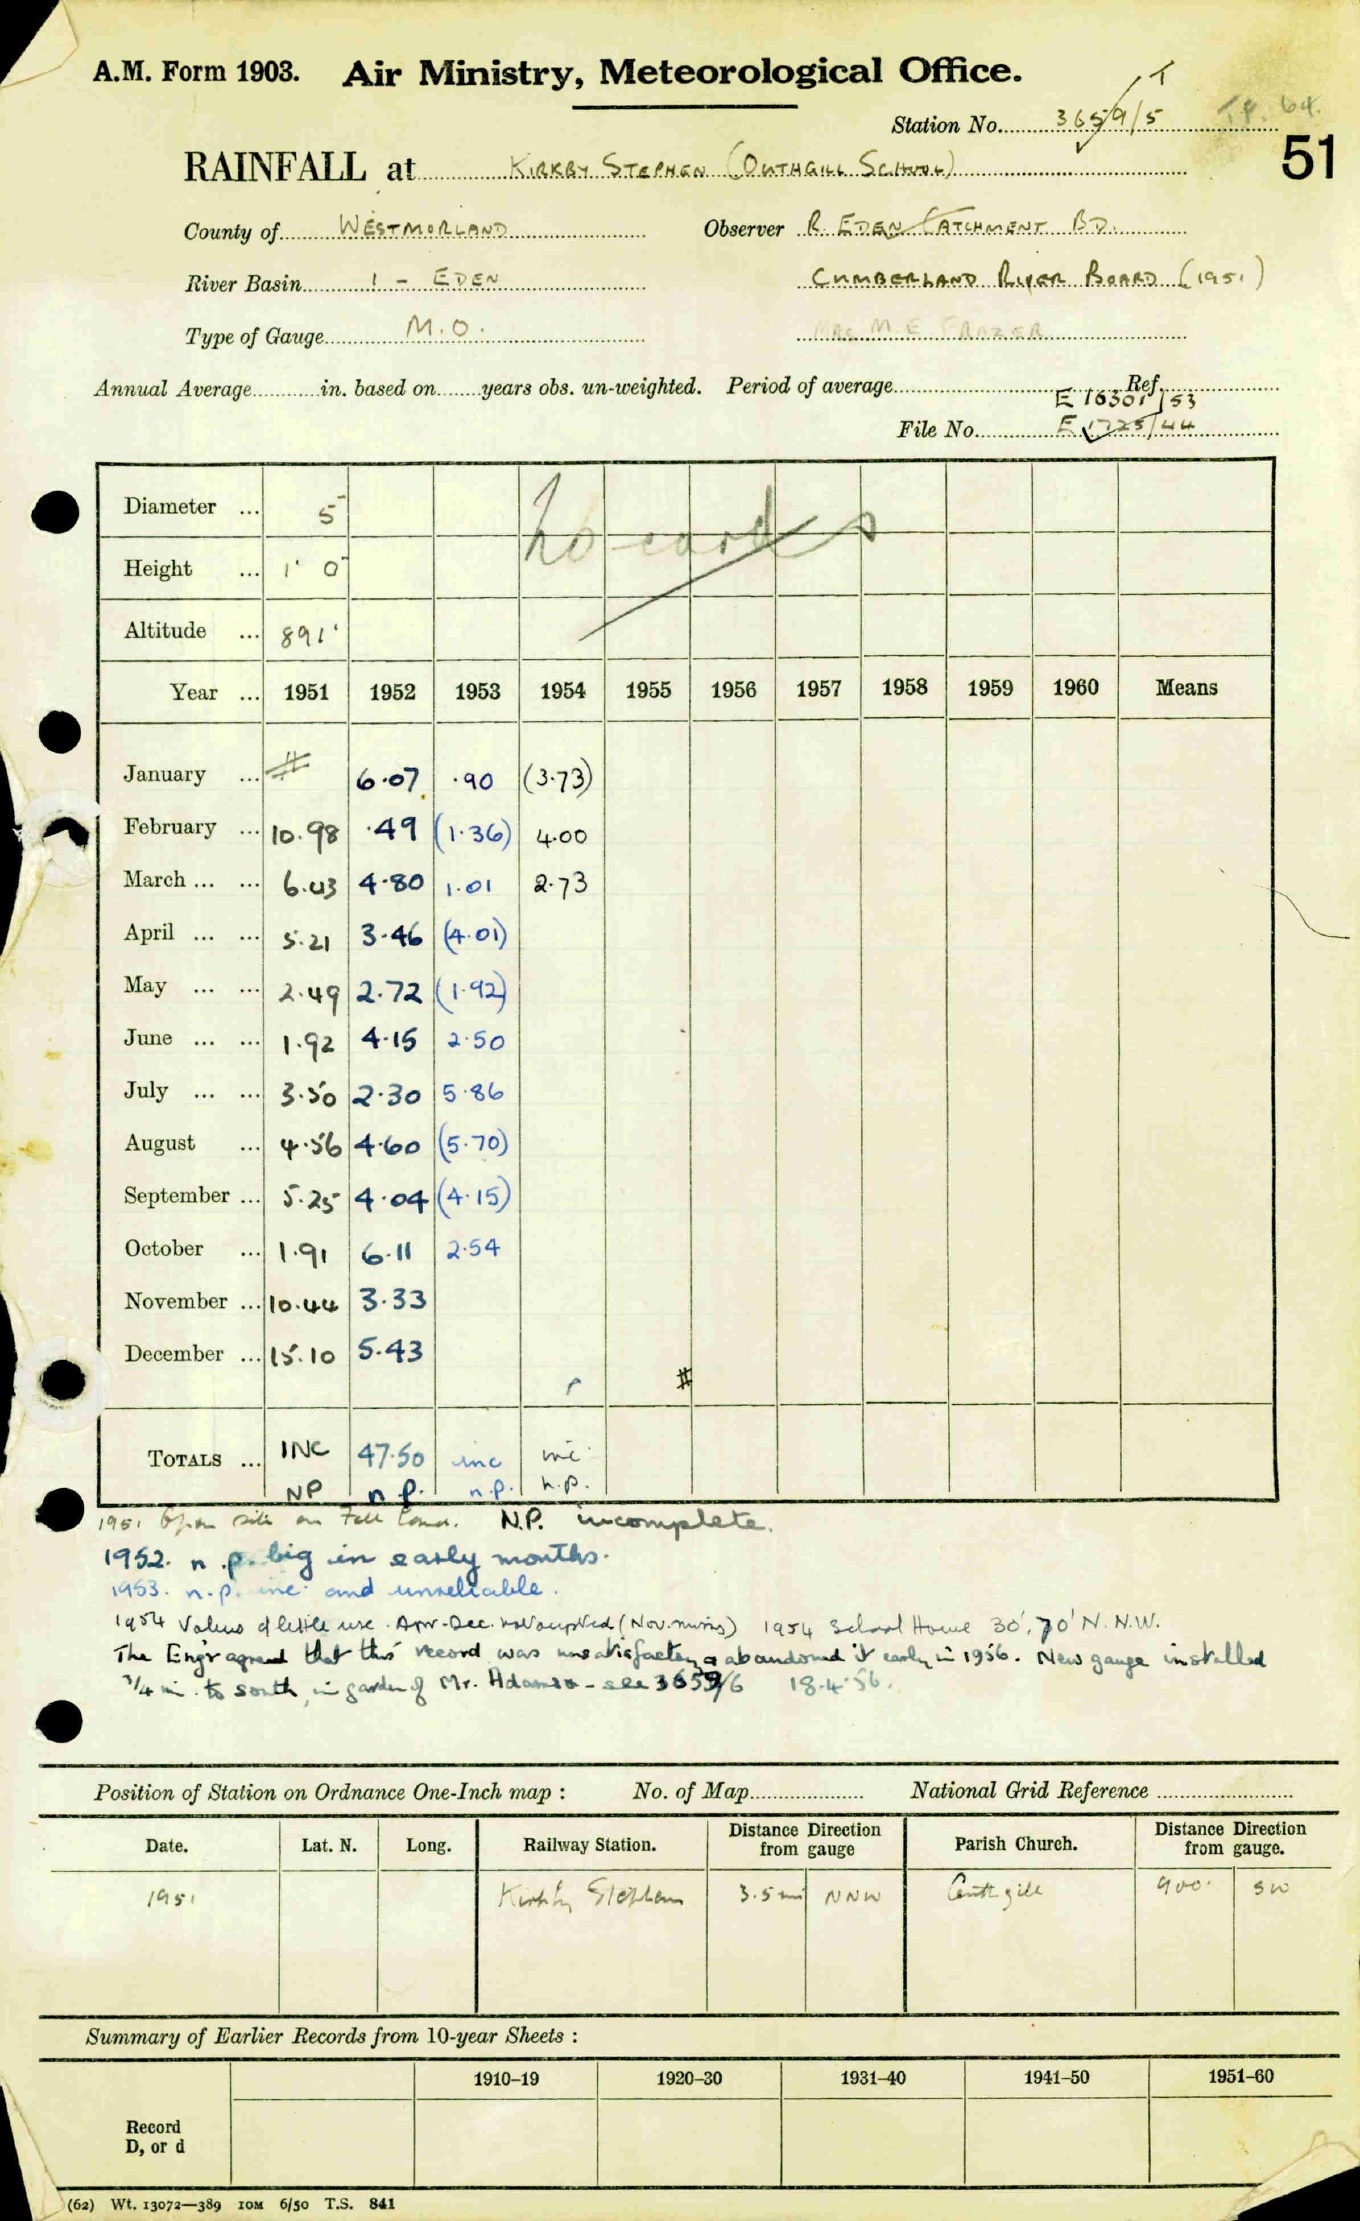 A.M. Form 1903. Air Ministry, Meteorological Office.
T
Station No. 3659/5
51
RAINFALL at KIRKBY STEPHEN (OUTHGILL SCHOOL)
County of WESTMORLAND Observer R. EDEN CATCHMENT BD.
River Basin 1 - EDEN CUMBERLAND RIVER BOARD (1951)
Type of Gauge M.O. MRS M.E. FRAZER
Annual Average in. based on years obs. un-weighted. Period of average Ref.
E 16301/53
File No. E 1725/44
Diameter ... 5" No cards
Height ... 1' 0"
Altitude ... 891'
Year ... 1951 1952 1953 1954 1955 1956 1957 1958 1959 1960 Means
January ... # 6.07 .90 (3.73)
February ... 10.98 .49 (1.36) 4.00
March ... ... 6.03 4.80 1.01 2.73
April ... ... 5.21 3.46 (4.01)
May ... ... 2.49 2.72 (1.92)
June ... ... 1.92 4.15 2.50
July ... ... 3.50 2.30 5.86
August ... 4.56 4.60 (5.70)
September ... 5.25 4.04 (4.15)
October ... 1.91 6.11 2.54
November ... 10.44 3.33
December ... 15.10 5.43
#
TOTALS ... INC 47.50 inc inc
NP n.p. n.p. n.p.
1951 Open site on Fell land. N.P. incomplete.
1952. n.p. big in early months.
1953. n.p. inc and unreliable.
1954 Values of little use. Apr-Dec. not accepted (Nov. missing) 1954 School House 30', 70' N.N.W.
The Eng'r agreed that this record was unsatisfactory & abandoned it early in 1956. New gauge installed
3/4 mi. to south, in garden of Mr. Adamson - see 3659/6 18.4.56.
Position of Station on Ordnance One-Inch map : No. of Map National Grid Reference
Date. Lat. N. Long. Railway Station. Distance Direction from gauge Parish Church. Distance Direction from gauge.
1951 Kirkby Stephen 3.5 mi NNW Outhgill 900' SW
Summary of Earlier Records from 10-year Sheets :
1910–19 1920–30 1931–40 1941–50 1951–60
Record
D, or d
(62) Wt. 13072—389 10M 6/50 T.S. 841